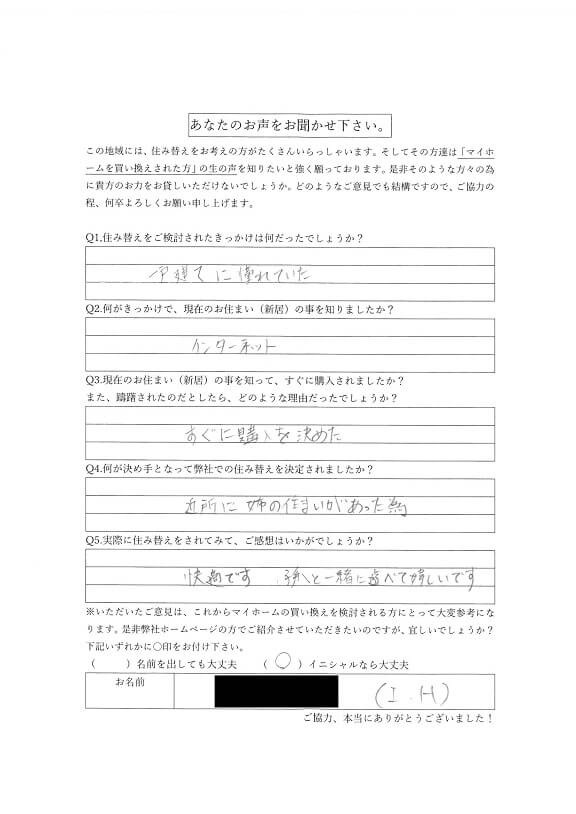 あなたのお声をお聞かせ下さい。
この地域には、住み替えをお考えの方がたくさんいらっしゃいます。そしてその方達は「マイホ
ームを買い換えされた方」の生の声を知りたいと強く願っております。是非そのような方々の為
に貴方のお力をお貸しいただけないでしょうか。どのようなご意見でも結構ですので、ご協力の
程、何卒よろしくお願い申し上げます。
Q1.住み替えをご検討されたきっかけは何だったでしょうか？
一戸建てに憧れていた
Q2.何がきっかけで、現在のお住まい（新居）の事を知りましたか？
インターネット
Q3.現在のお住まい（新居）の事を知って、すぐに購入されましたか？
また、躊躇されたのだとしたら、どのような理由だったでしょうか？
すぐに購入を決めた
Q4.何が決め手となって弊社での住み替えを決定されましたか？
近所に姉の住まいがあった為
Q5.実際に住み替えをされてみて、ご感想はいかがでしょうか？
快適です 孫と一緒に遊べて嬉しいです
※いただいたご意見は、これからマイホームの買い換えを検討される方にとって大変参考にな
ります。是非弊社ホームページの方でご紹介させていただきたいのですが、宜しいでしょうか？
下記いずれかに〇印をお付け下さい。
（　　）名前を出しても大丈夫　（ ○ ）イニシャルなら大丈夫
お名前 (I.H)
ご協力、本当にありがとうございました！